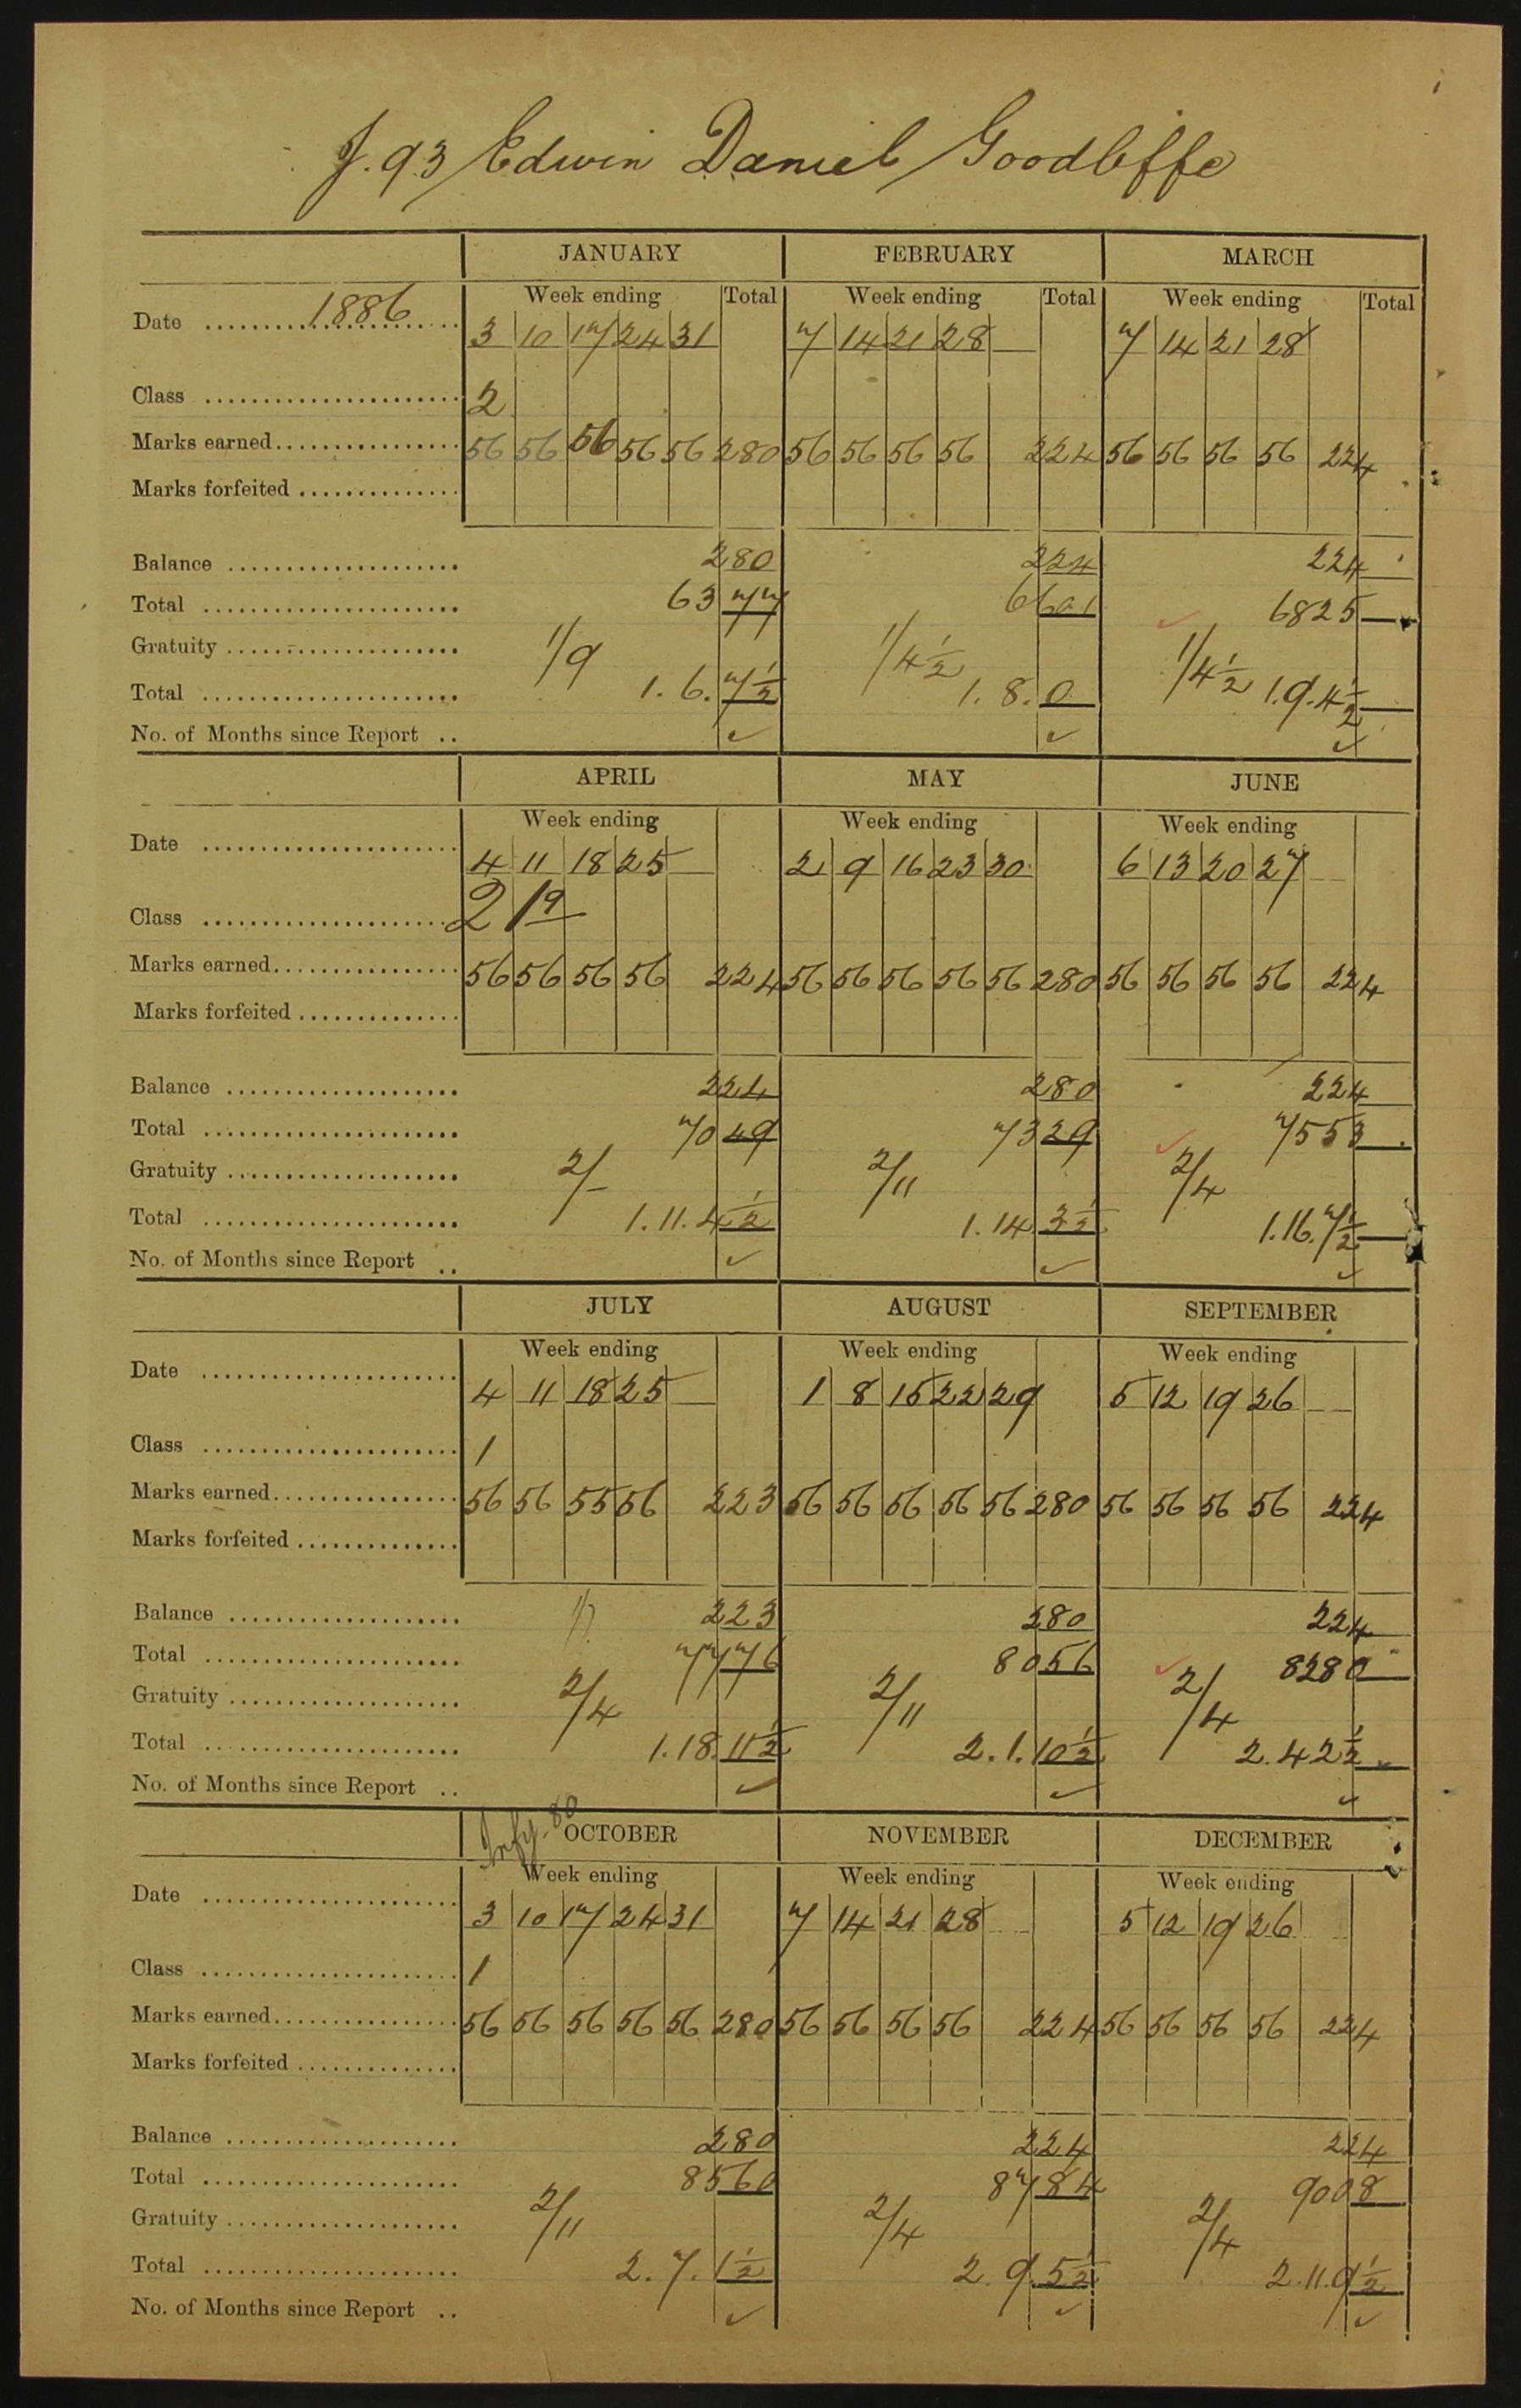 J.93 Edwin Daniel Goodliffe
JANUARY FEBRUARY MARCH
Week ending Total Week ending Total Week ending Total
Date 1886 3 10 17 24 31 7 14 21 28 7 14 21 28
Class 2
Marks earned 56 56 56 56 56 280 56 56 56 56 224 56 56 56 56 224
Marks forfeited
Balance 280 224 224
Total 6377 6601 6825
Gratuity 1/9 1/4½ 1/4½
Total 1.6.7½ 1.8.0 1.9.4½
No. of Months since Report .. ✓ ✓ ✓
APRIL MAY JUNE
Week ending Week ending Week ending
Date 4 11 18 25 2 9 16 23 30 6 13 20 27
Class 2 1
Marks earned 56 56 56 56 224 56 56 56 56 56 280 56 56 56 56 224
Marks forfeited
Balance 224 280 224
Total 7049 7329 7553
Gratuity 2/- 2/11 2/4
Total 1.11.4½ 1.14.3½ 1.16.7½
No. of Months since Report .. ✓ ✓ ✓
JULY AUGUST SEPTEMBER
Week ending Week ending Week ending
Date 4 11 18 25 1 8 15 22 29 5 12 19 26
Class 1
Marks earned 56 56 55 56 223 56 56 56 56 56 280 56 56 56 56 224
Marks forfeited
Balance 223 280 224
Total 7776 8056 8280
Gratuity 2/4 2/11 2/4
Total 1.18.11½ 2.1.10½ 2.4.2½
No. of Months since Report .. ✓ ✓ ✓
OCTOBER NOVEMBER DECEMBER
Week ending Week ending Week ending
Date 3 10 17 24 31 7 14 21 28 5 12 19 26
Class 1
Marks earned 56 56 56 56 56 280 56 56 56 56 224 56 56 56 56 224
Marks forfeited
Balance 280 224 224
Total 8560 8784 9008
Gratuity 2/11 2/4 2/4
Total 2.7.1½ 2.9.5½ 2.11.9½
No. of Months since Report .. ✓ ✓ ✓